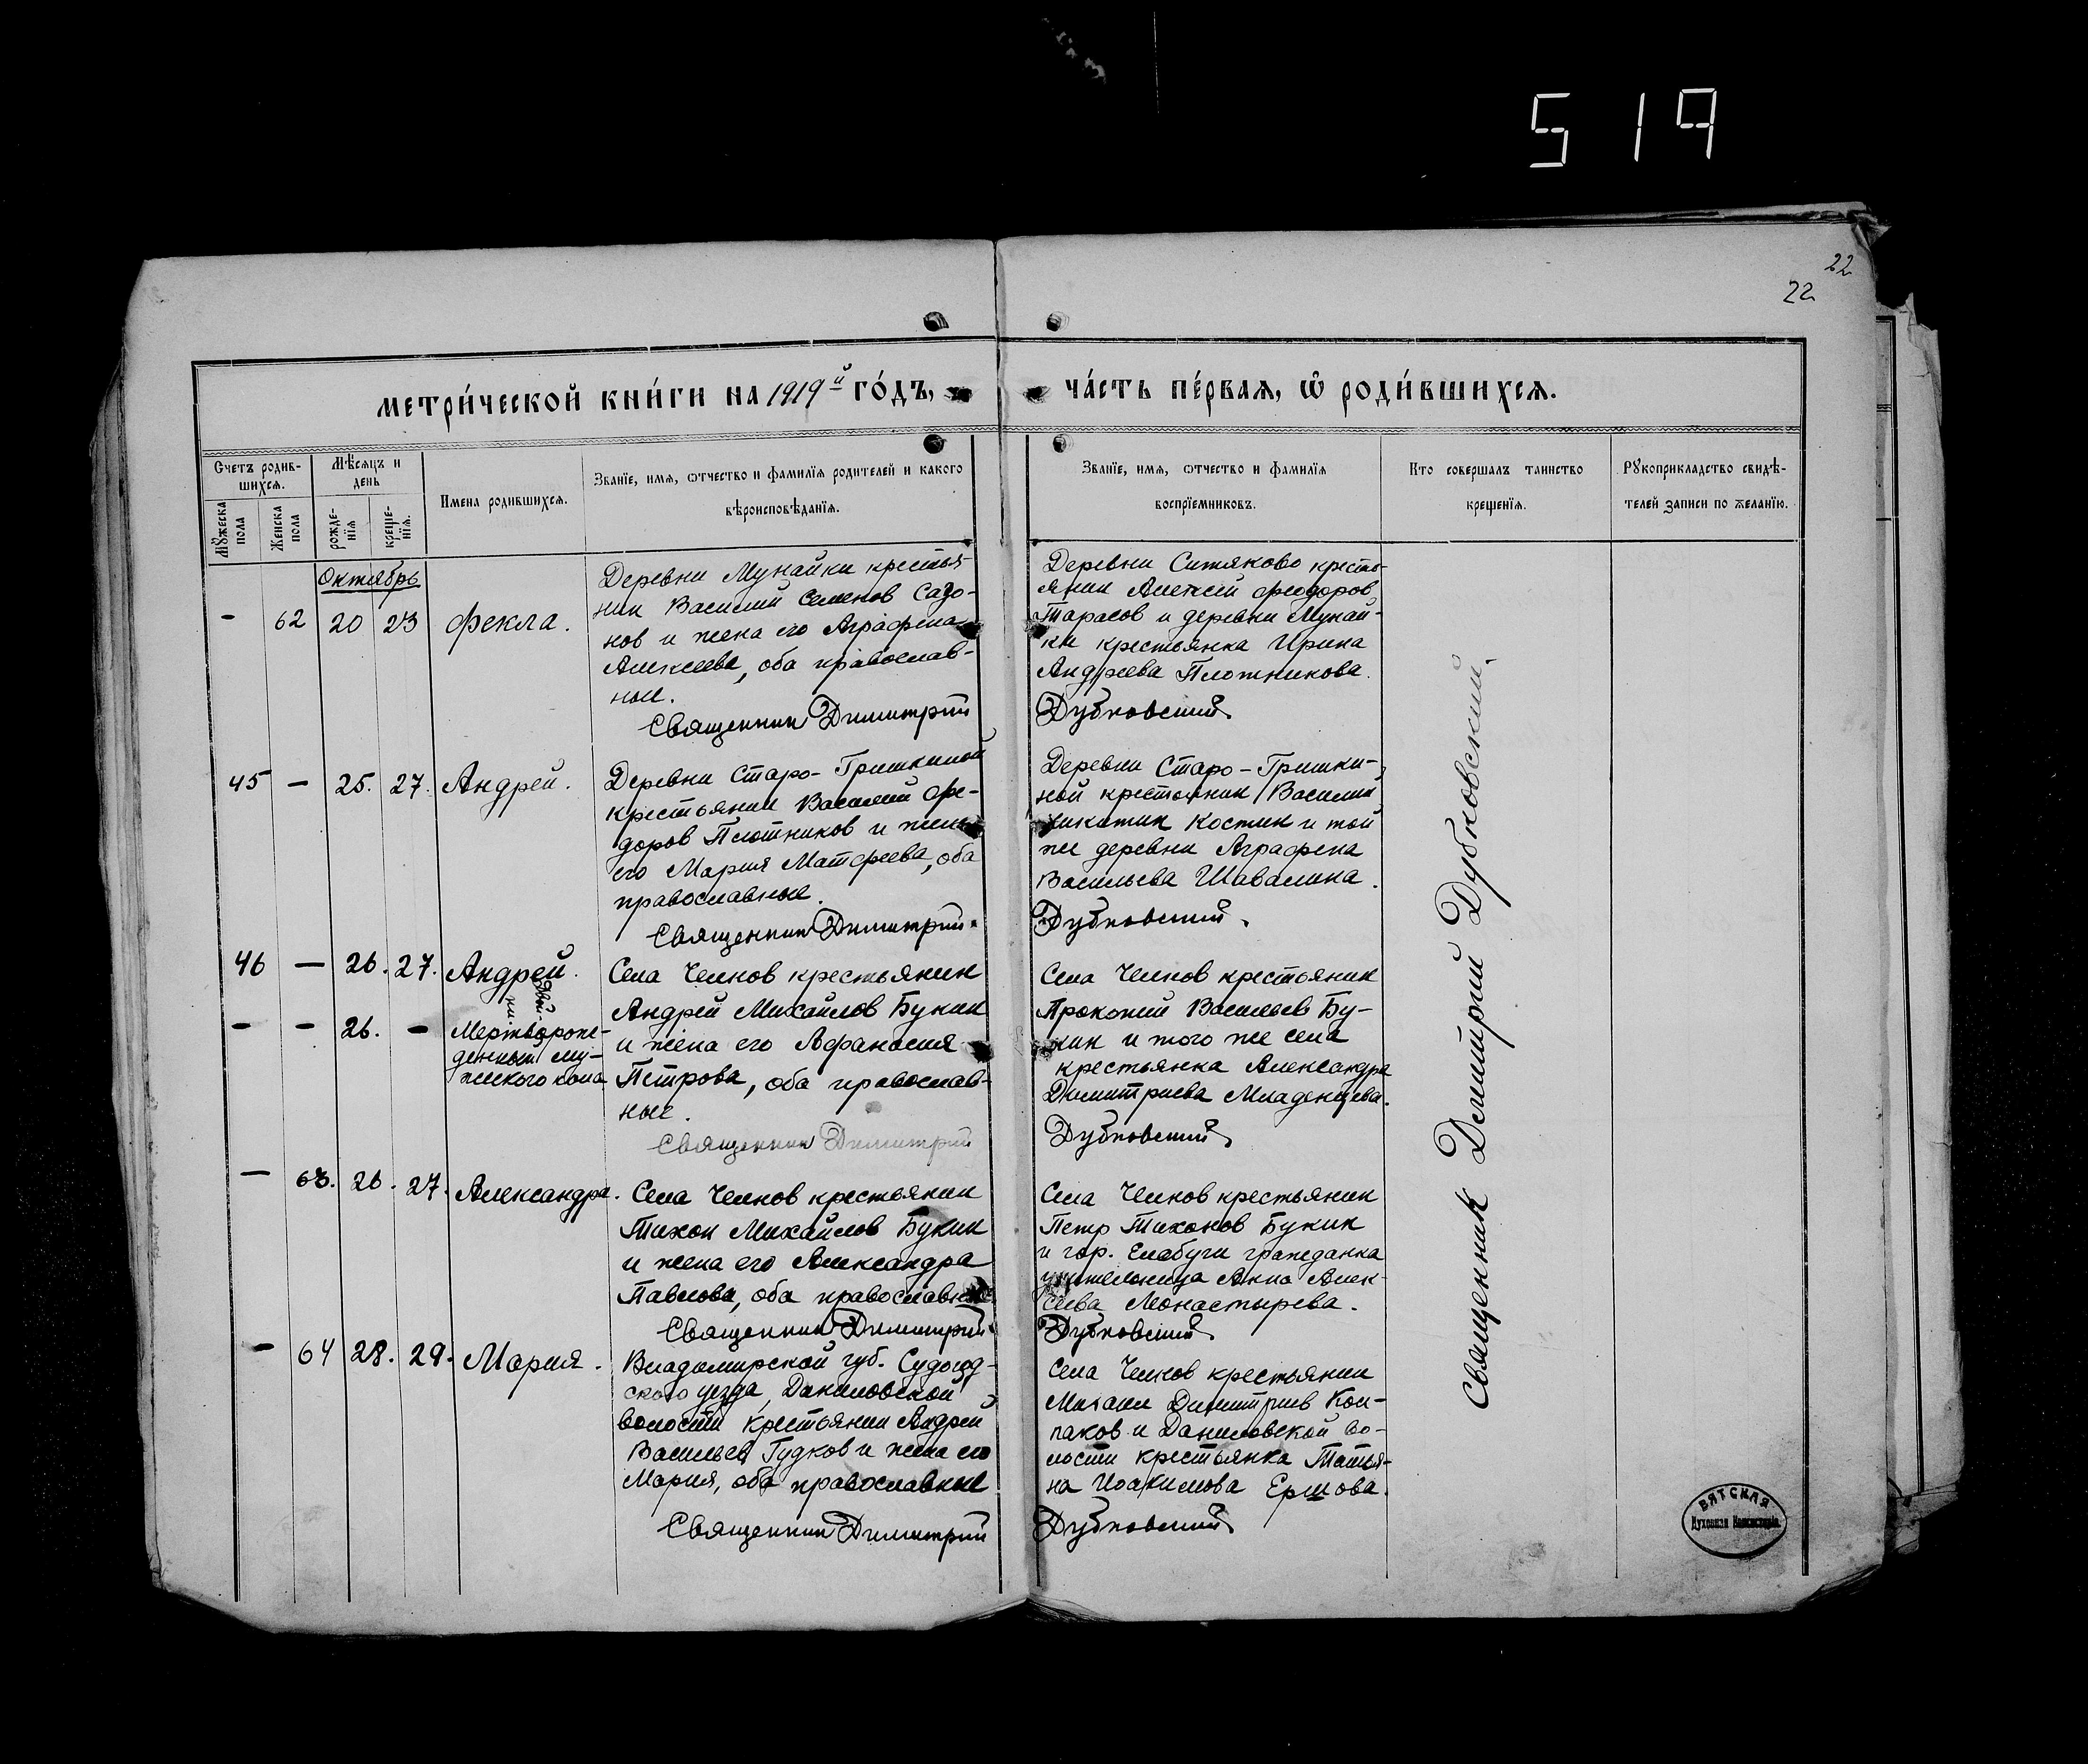 519
22
22
МЕТРИ́ЧЕСКОЙ КНИ́ГИ НА 1919й ГО́ДЪ,
ЧА́СТЬ ПЕ́РВАЯ, Ѡ РОДИ́ВШИХСЯ.
Счетъ родив-
шихся.
Мѹжеска пола
Женска пола
Мѣсяцъ и
день
рожде-
нїя
креще-
нїя.
Имена родившихся.
Званїе, имя, ѿтчество и фамилїя родителей и какого
вѣроисповѣданїя.
Званїе, имя, ѿтчество и фамилїя
воспрїемниковъ.
Кто совершалъ таинство
крещенїя.
Рѹкоприкладство свидѣ-
телей записи по желанїю.
Октябрь
- 62 20 23 Фекла.
Деревни Мунайки крестья-
нин Василий Семенов Сазо-
нов и жена его Аграфена
Алексеева, оба православ-
ные.
Священник Димитрий
Деревни Ситяково кресть-
янин Алексей Феодоров
Тарасов и деревни Мунай-
ки крестьянка Ирина
Андреева Плотникова.
Дубновский.
45 — 25. 27. Андрей.
Деревни Старо-Гришкиной
крестьянин Василий Фе-
доров Плотников и жена
его Мария Матфеева, оба
православные.
Священник Димитрий.
Деревни Старо-Гришки-
ной крестьянин Василий
Никитин Костин и той
же деревни Аграфена
Васильева Шавалина.
Дубновский.
46 — 26. 27. Андрей.
- - 26. - Мертворож-
денный му-
жского пола
Села Челнов крестьянин
Андрей Михайлов Букин
и жена его Афанасия
Петрова, оба православ-
ные.
Священник Димитрий
Села Челнов крестьянин
Прокопий Васильев Бу-
кин и того же села
крестьянка Александра
Димитриева Младенцева.
Дубновский.
— 63. 26. 27. Александра.
Села Челнов крестьянин
Тихон Михайлов Букин
и жена его Александра
Павлова, оба православные
Священник Димитрий
Села Челнов крестьянин
Петр Тихонов Букин
и гор. Елабуги гражданка
учительница Анна Алек-
сеева Монастырева.
Дубновский.
- 64 28. 29. Мария.
Владимирской губ. Судогод-
ского уезда, Даниловской
волости крестьянин Андрей
Васильев Гудков и жена его
Мария, оба православные
Священник Димитрий
Села Челнов крестьянин
Михаил Димитриев Кол-
паков и Даниловской во-
лости крестьянка Татья-
на Иоакимова Ершова.
Дубновский.
Священник Димитрий Дубновский.
ВЯТСКАЯ
Духовная Консисторія